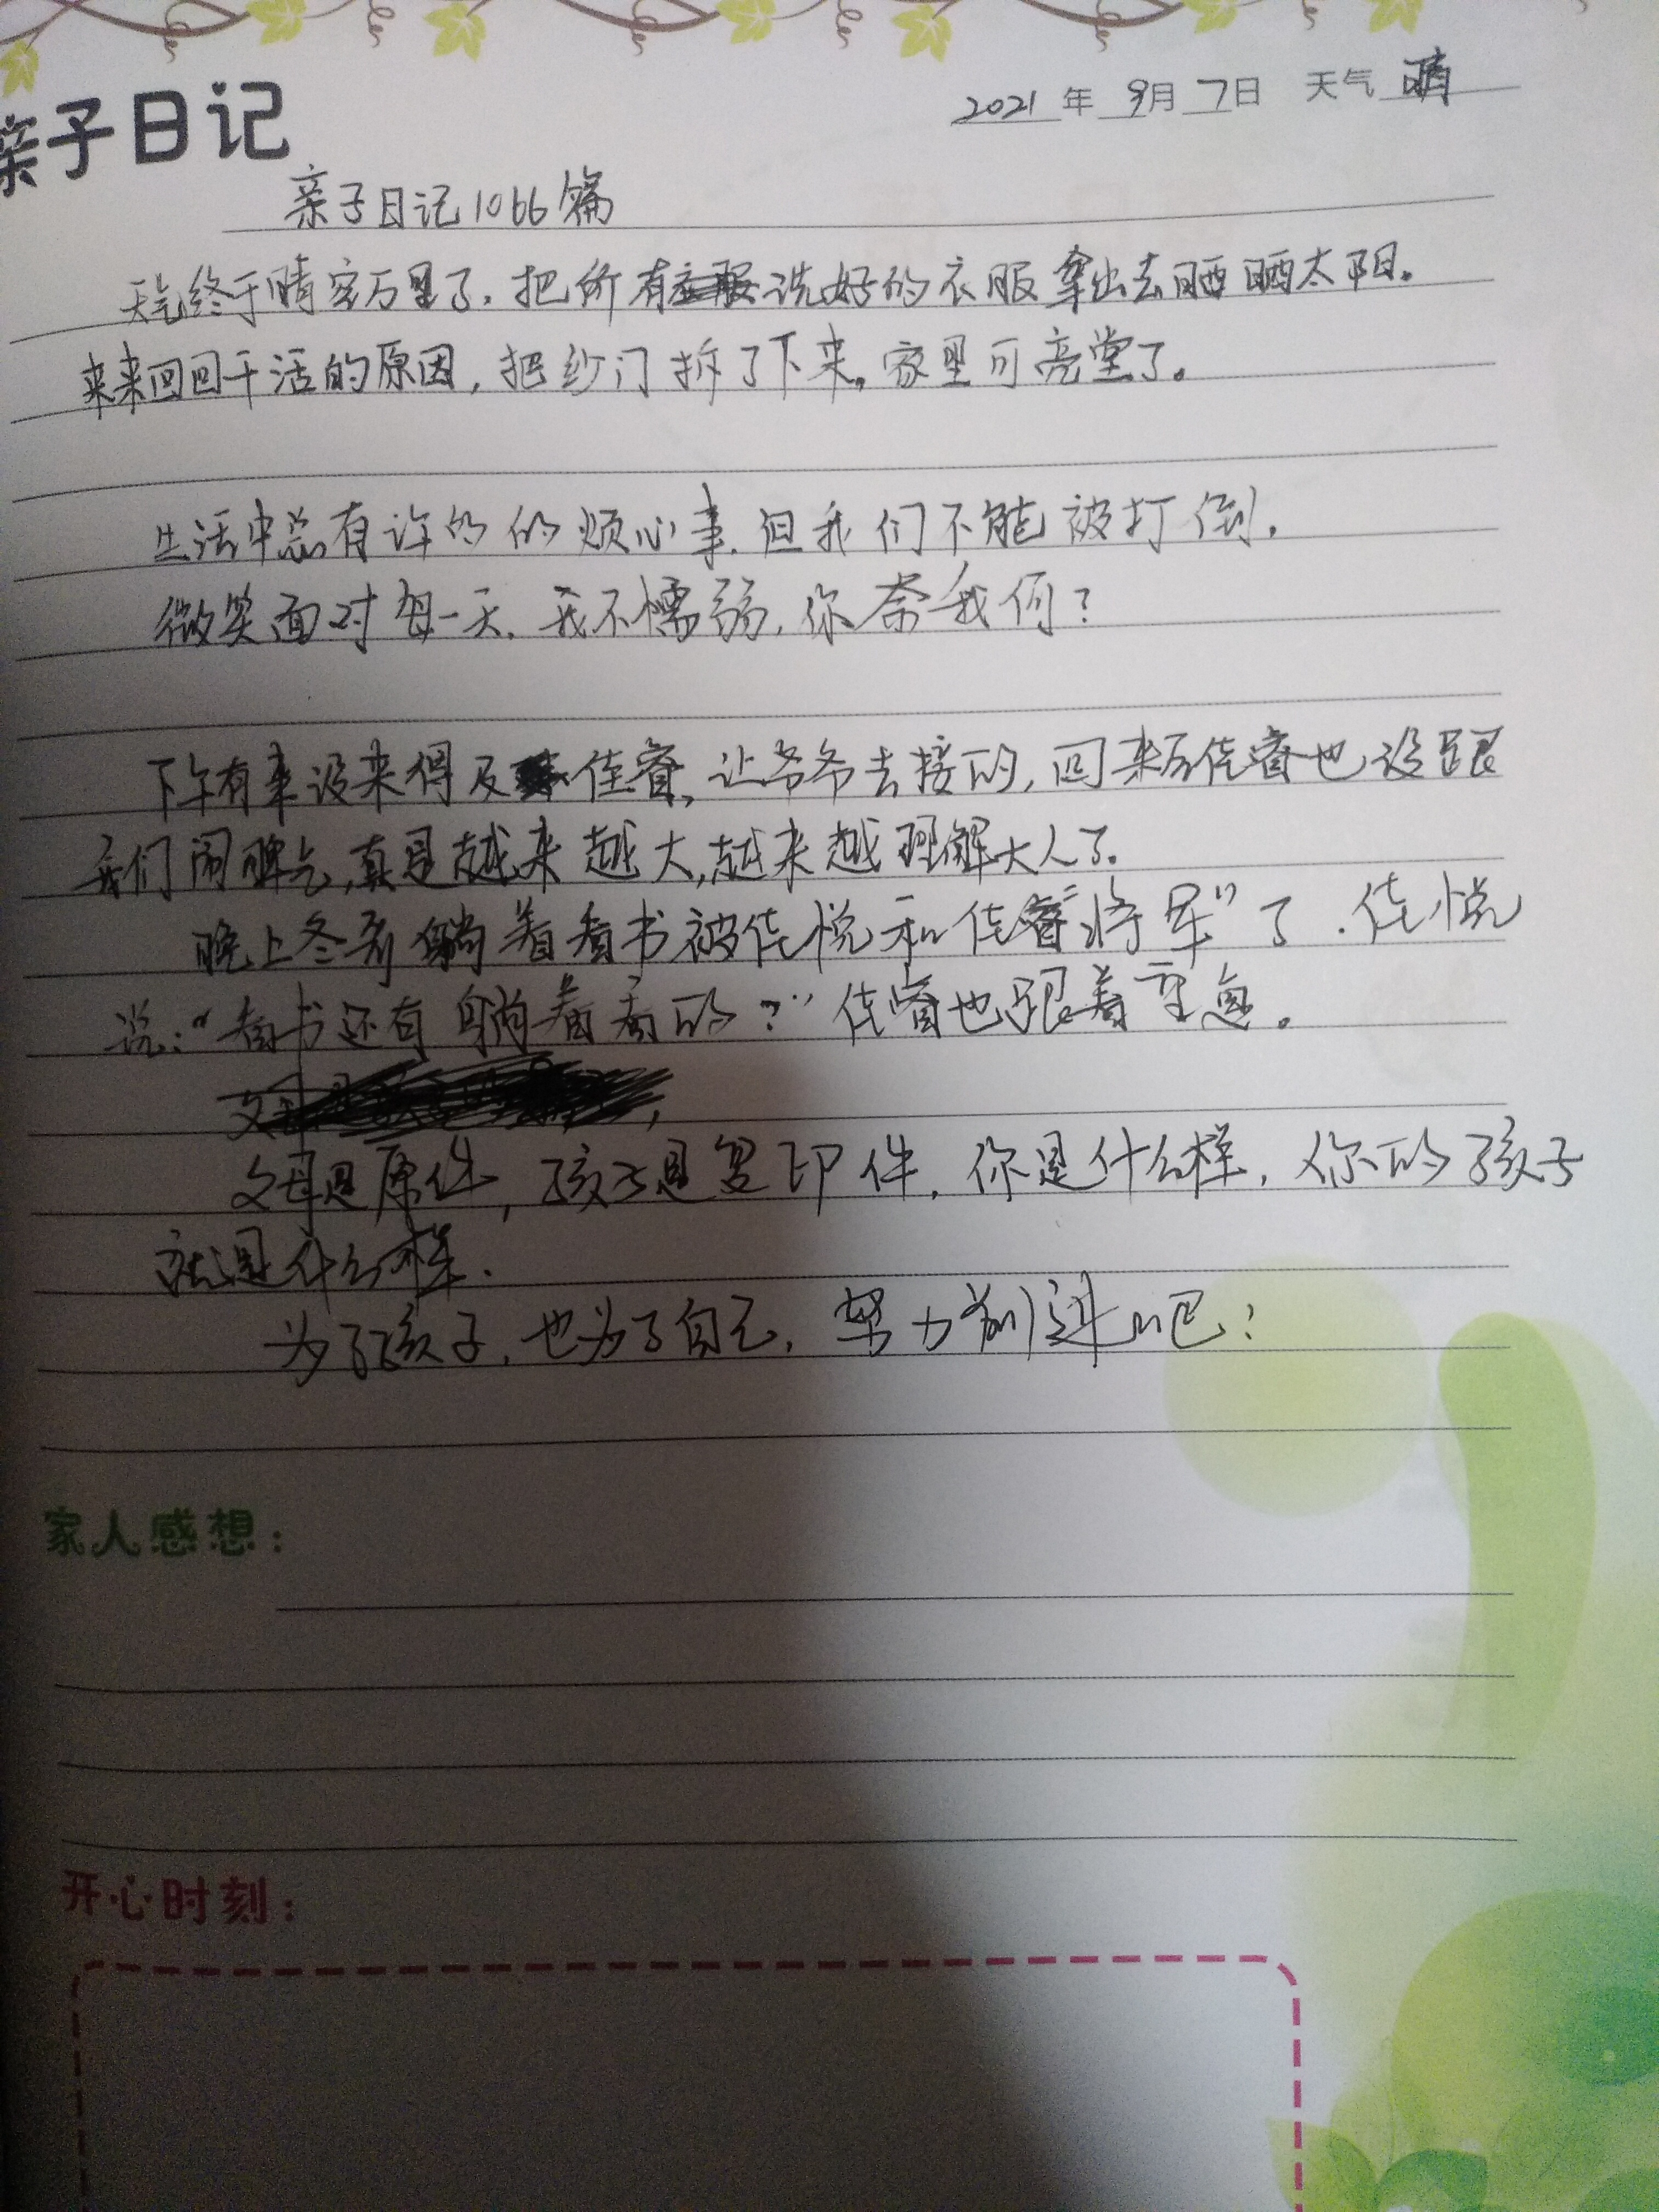 亲子日记
2021年 9月 7日 天气 晴
亲子日记1066篇
天气终于晴空万里了.把所有洗好的衣服拿出去晒晒太阳。
来来回回干活的原因,把纱门拆了下来。家里可亮堂了。
生活中总有许多的烦心事.但我们不能被打倒.
微笑面对每一天.我不懦弱,你奈我何?
下午有事没来得及佳睿,让爷爷去接的,回来后佳睿也没跟
我们闹脾气,真是越来越大,越来越理解大人了。
晚上冬哥躺着看书被佳悦和佳睿“将军”了.佳悦
说:“看书还有躺着看的?”佳睿也跟着
父母是原件,孩子是复印件.你是什么样,你的孩子
就是什么样.
为了孩子,也为了自己,努力前进吧!
家人感想:
开心时刻: